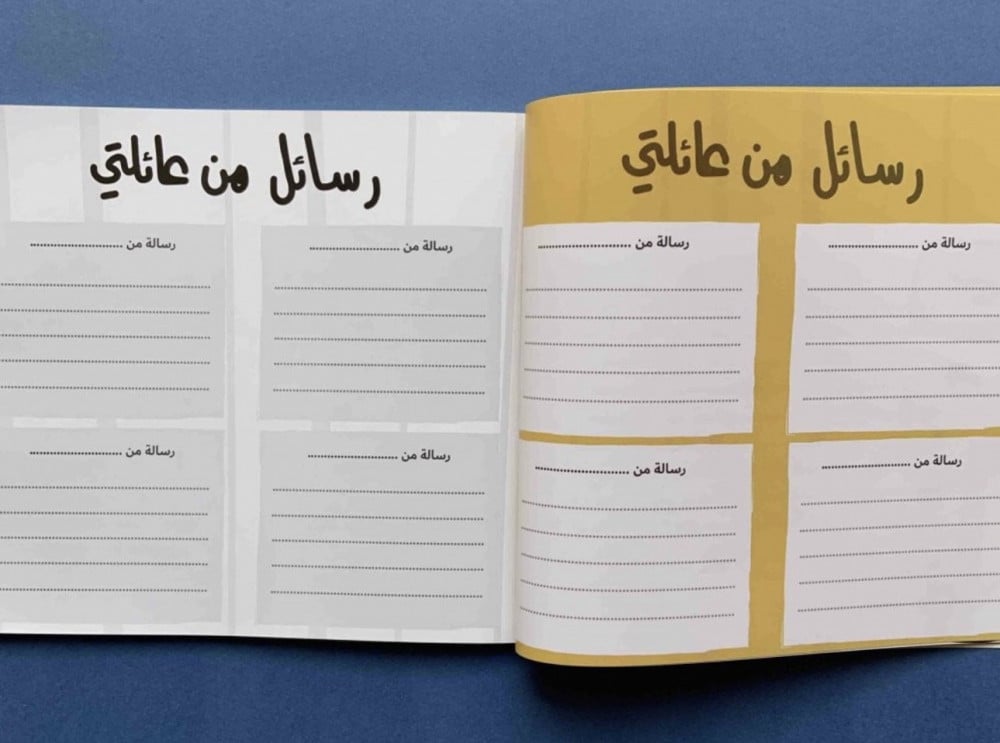 رسائل من عائلتي
رسالة من ............................
رسالة من ............................
رسالة من ............................
رسالة من ............................
رسائل من عائلتي
رسالة من ............................
رسالة من ............................
رسالة من ............................
رسالة من ............................